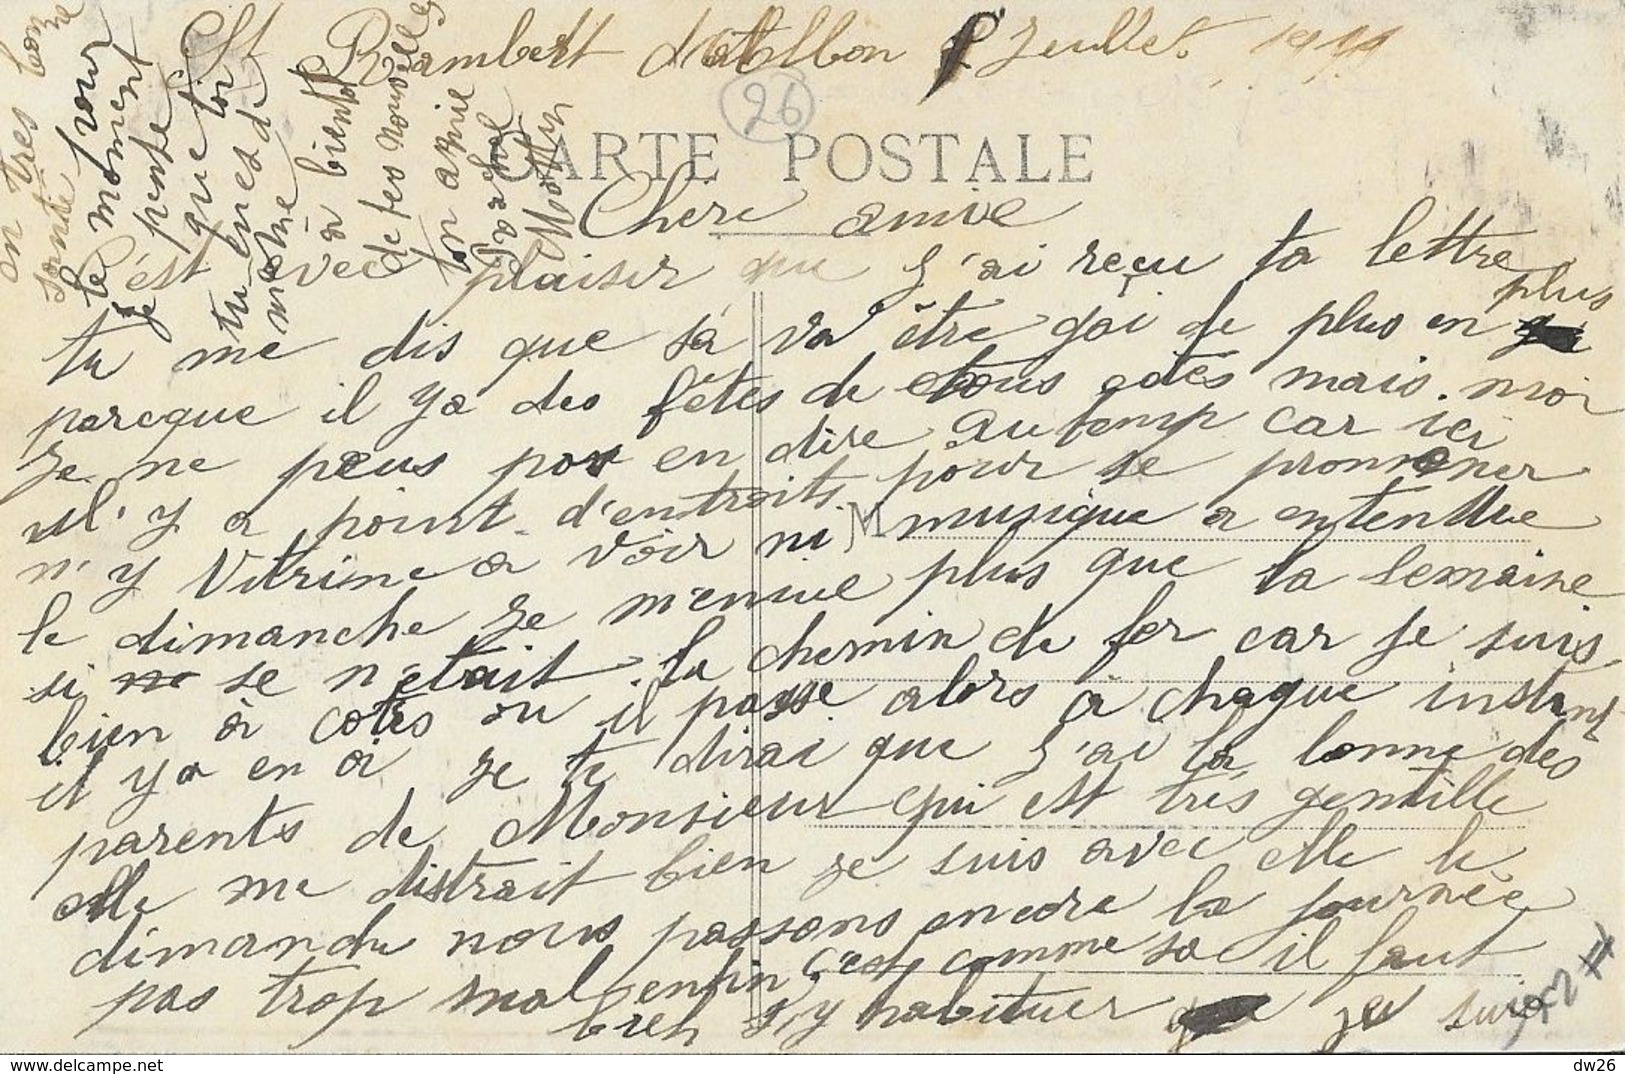 St Rambert d'Albon Juillet 1911
26
CARTE POSTALE
Chère amie
C'est avec plaisir que J'ai reçu ta lettre
tu me dis que sà va être gai de plus en plus
parceque il ya des fêtes de tous cotés mais moi
Je ne peus pas en dire autemp car ici
il y a point d'entroits pour se promener
n'y Vitrine a voir ni musique a entendre
le dimanche Je m'ennuie plus que la semaine
si se n'était le chemin de fer car Je suis
bien à cotés ou il passe alors à chaque instant
il ya en a Je te dirai que J'ai la bonne dès
parents de Monsieur qui est très gentille
elle me distrait bien Je suis avec elle le
dimanche nous passons encore la Journée
pas trop mal enfin c'est comme sa il faut
bien s'y habituer Je suis
en très bonne
santé
le pour
moment
Je pense
que toi
tu en es de
même
a bientot
de tes nouvelles
ton amie
dw26